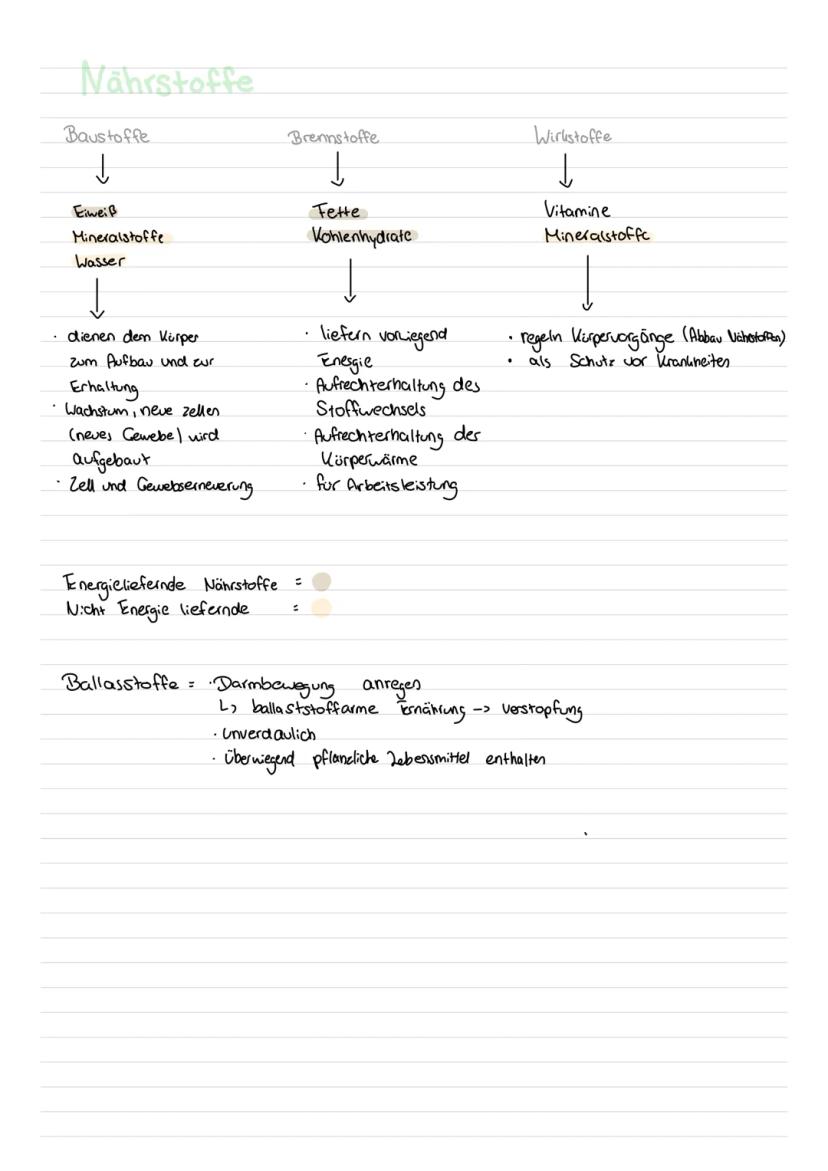 Nährstoffe
Baustoffe
Eiweiß
Mineralstoffe
Wasser
· dienen dem Körper
zum Aufbau und zur
Erhaltung
· Wachstum, neue zellen
(neues Gewebe) wird
aufgebaut
· Zell und Gewebserneuerung
Brennstoffe
Fette
Kohlenhydrate
· liefern vorwiegend
Energie
· Aufrechterhaltung des
Stoffwechsels
· Aufrechterhaltung der
Körperwärme
· für Arbeitsleistung
Wirkstoffe
Vitamine
Mineralstoffe
· regeln Körpervorgänge (Abbau Nährstoffen)
· als Schutz vor Krankheiten
Energieliefernde Nährstoffe =
Nicht Energie liefernde =
Ballasstoffe = · Darmbewegung anregen
↳ ballaststoffarme Ernährung -> Verstopfung
· unverdaulich
· Überwiegend pflanzliche Lebensmittel enthalten